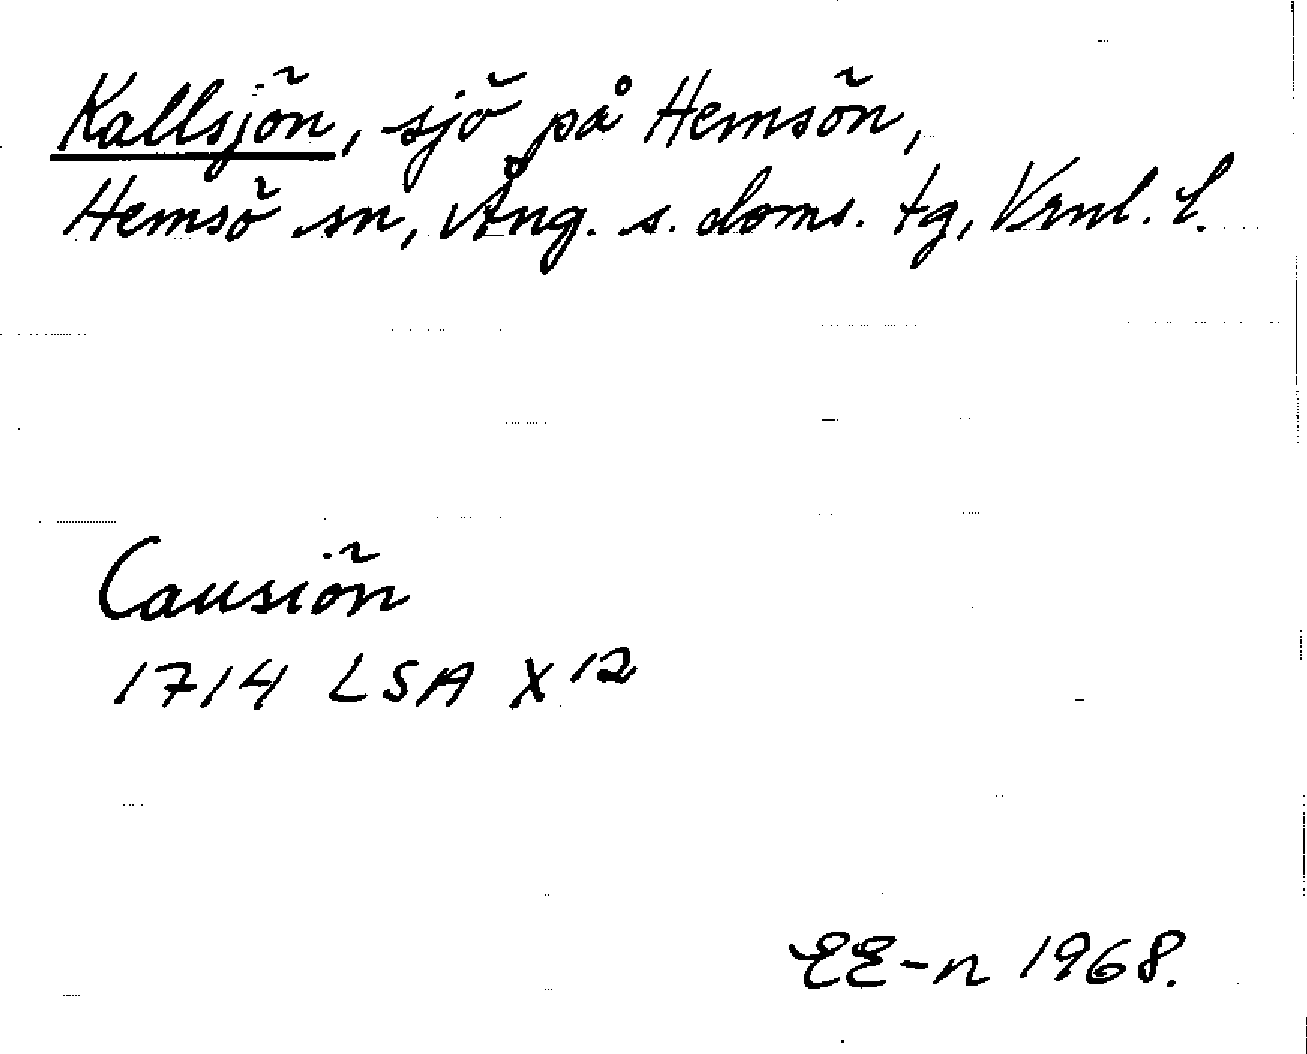 Kallsjön, sjö på Hemsön,
Hemsö sn, Ång. s. doms. tg, Vrnl. l.
Causiön
1714 LSA X 12
EE-n 1968.